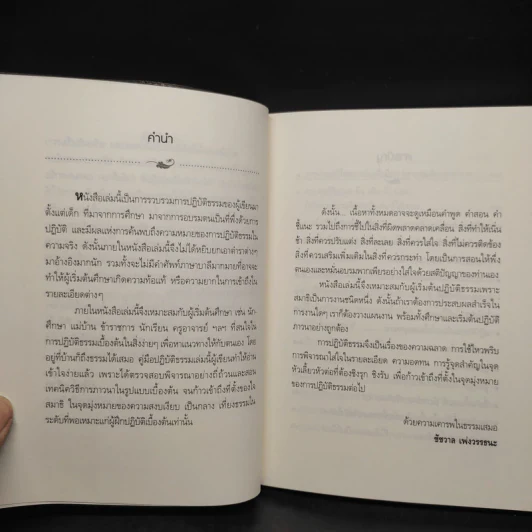 คำนำ
หนังสือเล่มนี้เป็นการรวบรวมการปฏิบัติธรรมของผู้เขียนมา
ตั้งแต่เด็ก ที่มาจากการศึกษา มาจากการอบรมตนเป็นที่พึ่งด้วยการ
ปฏิบัติ และมีผลแห่งการค้นพบถึงความหมายของการปฏิบัติธรรมใน
ความจริง ดังนั้นภายในหนังสือเล่มนี้จึงไม่ได้หยิบยกเอาตำราต่างๆ
มาอ้างอิงมากนัก รวมทั้งจะไม่มีคำศัพท์ภาษาบาลีมากมายที่อาจจะ
ทำให้ผู้เริ่มต้นศึกษาเกิดความท้อแท้ หรือความยากในการเข้าถึงใน
รายละเอียดต่างๆ
ภายในหนังสือเล่มนี้จึงเหมาะสมกับผู้เริ่มต้นศึกษา เช่น นัก-
ศึกษา แม่บ้าน ข้าราชการ นักเรียน ครูอาจารย์ ฯลฯ ที่สนใจใน
การปฏิบัติธรรมเบื้องต้นในสิ่งง่ายๆ เพื่อหาแนวทางให้กับตนเอง โดย
อยู่ที่บ้านก็ถึงธรรมได้เสมอ คู่มือปฏิบัติธรรมเล่มนี้ผู้เขียนทำให้อ่าน
เข้าใจง่ายแล้ว เพราะได้ตรวจสอบพิจารณาอย่างถี่ถ้วนและสอน
เทคนิควิธีการภาวนาในรูปแบบเบื้องต้น จนก้าวเข้าถึงที่ตั้งของใจ
สมาธิ ในจุดมุ่งหมายของความสงบเงียบ เป็นกลาง เที่ยงธรรมใน
ระดับที่พอเหมาะแก่ผู้ฝึกปฏิบัติเบื้องต้นเท่านั้น
ดังนั้น... เนื้อหาทั้งหมดอาจจะดูเหมือนคำพูด คำสอน คำ
ชี้แนะ รวมไปถึงการชี้ไปในสิ่งที่ผิดพลาดคลาดเคลื่อน สิ่งที่ทำให้เนิ่น
ช้า สิ่งที่ควรปรับแต่ง สิ่งที่ละเลย สิ่งที่ควรใส่ใจ สิ่งที่ไม่ควรติดข้อง
สิ่งที่ควรเสริมเพิ่มเติมในสิ่งที่ควรกระทำ โดยเป็นการสอนให้พึ่ง
ตนเองและหมั่นอบรมพากเพียรอย่างใส่ใจด้วยสติปัญญาของท่านเอง
หนังสือเล่มนี้จึงเหมาะสมกับผู้เริ่มต้นปฏิบัติธรรมเพราะ
สมาธิเป็นงานชนิดหนึ่ง ดังนั้นถ้าเราต้องการประสบผลสำเร็จใน
การงานใดๆ เราก็ต้องวางแผนงาน พร้อมทั้งศึกษาและเริ่มต้นปฏิบัติ
ภาวนาอย่างถูกต้อง
การปฏิบัติธรรมจึงเป็นเรื่องของความฉลาด การใช้ไหวพริบ
การพิจารณาใส่ใจในรายละเอียด ความอดทน การรู้จุดสำคัญในจุด
หัวเลี้ยวหัวต่อที่ต้องเชิงรุก เชิงรับ เพื่อก้าวเข้าถึงที่ตั้งในจุดมุ่งหมาย
ของการปฏิบัติธรรมต่อไป
ด้วยความเคารพในธรรมเสมอ
ชัชวาล เพ่งวรรธนะ